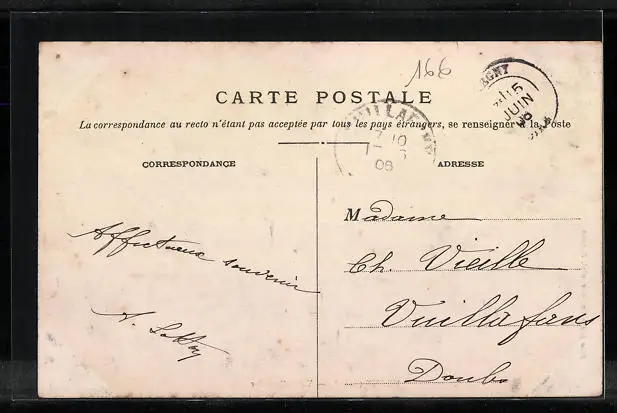 166
CARTE POSTALE
La correspondance au recto n'étant pas acceptée par tous les pays étrangers, se renseigner à la Poste
15
JUIN
10
06
CORRESPONDANCE
ADRESSE
Affectueux souvenir
Madame
Ch. Vieille
Vuillafans
Doubs